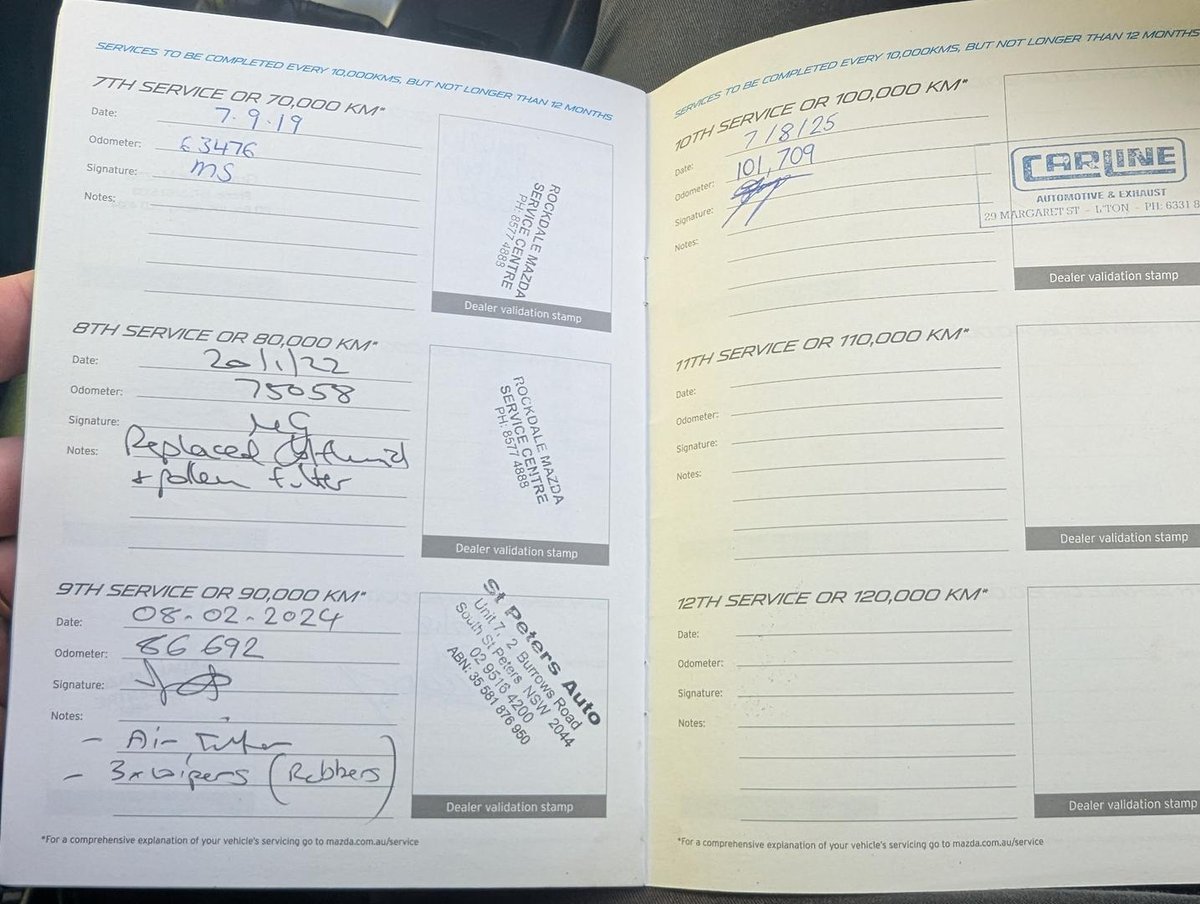 SERVICES TO BE COMPLETED EVERY 10,000KMS, BUT NOT LONGER THAN 12 MONTHS
7TH SERVICE OR 70,000 KM*
Date: 7.9.19
Odometer: 63476
Signature: MS
Notes:
ROCKDALE MAZDA
SERVICE CENTRE
PH: 8577 4888
Dealer validation stamp
8TH SERVICE OR 80,000 KM*
Date: 20/1/22
Odometer: 75058
Signature: MG
Notes: Replaced
+ pollen filter
ROCKDALE MAZDA
SERVICE CENTRE
PH: 8577 4888
Dealer validation stamp
9TH SERVICE OR 90,000 KM*
Date: 08-02-2024
Odometer: 86 692
Signature:
Notes:
- Air Filter
- 3x wipers (Rubbers)
St Peters Auto
Unit 7, 2 Burrows Road
South St Peters NSW 2044
02 9516 4200
ABN: 35 581 876 950
Dealer validation stamp
*For a comprehensive explanation of your vehicle's servicing go to mazda.com.au/service
SERVICES TO BE COMPLETED EVERY 10,000KMS, BUT NOT LONGER THAN 12 MONTHS
10TH SERVICE OR 100,000 KM*
Date: 7/8/25
Odometer: 101,709
Signature:
Notes:
CARLINE
AUTOMOTIVE & EXHAUST
29 MARGARET ST - L'TON - PH: 6331 8
Dealer validation stamp
11TH SERVICE OR 110,000 KM*
Date:
Odometer:
Signature:
Notes:
Dealer validation stamp
12TH SERVICE OR 120,000 KM*
Date:
Odometer:
Signature:
Notes:
Dealer validation stamp
*For a comprehensive explanation of your vehicle's servicing go to mazda.com.au/service